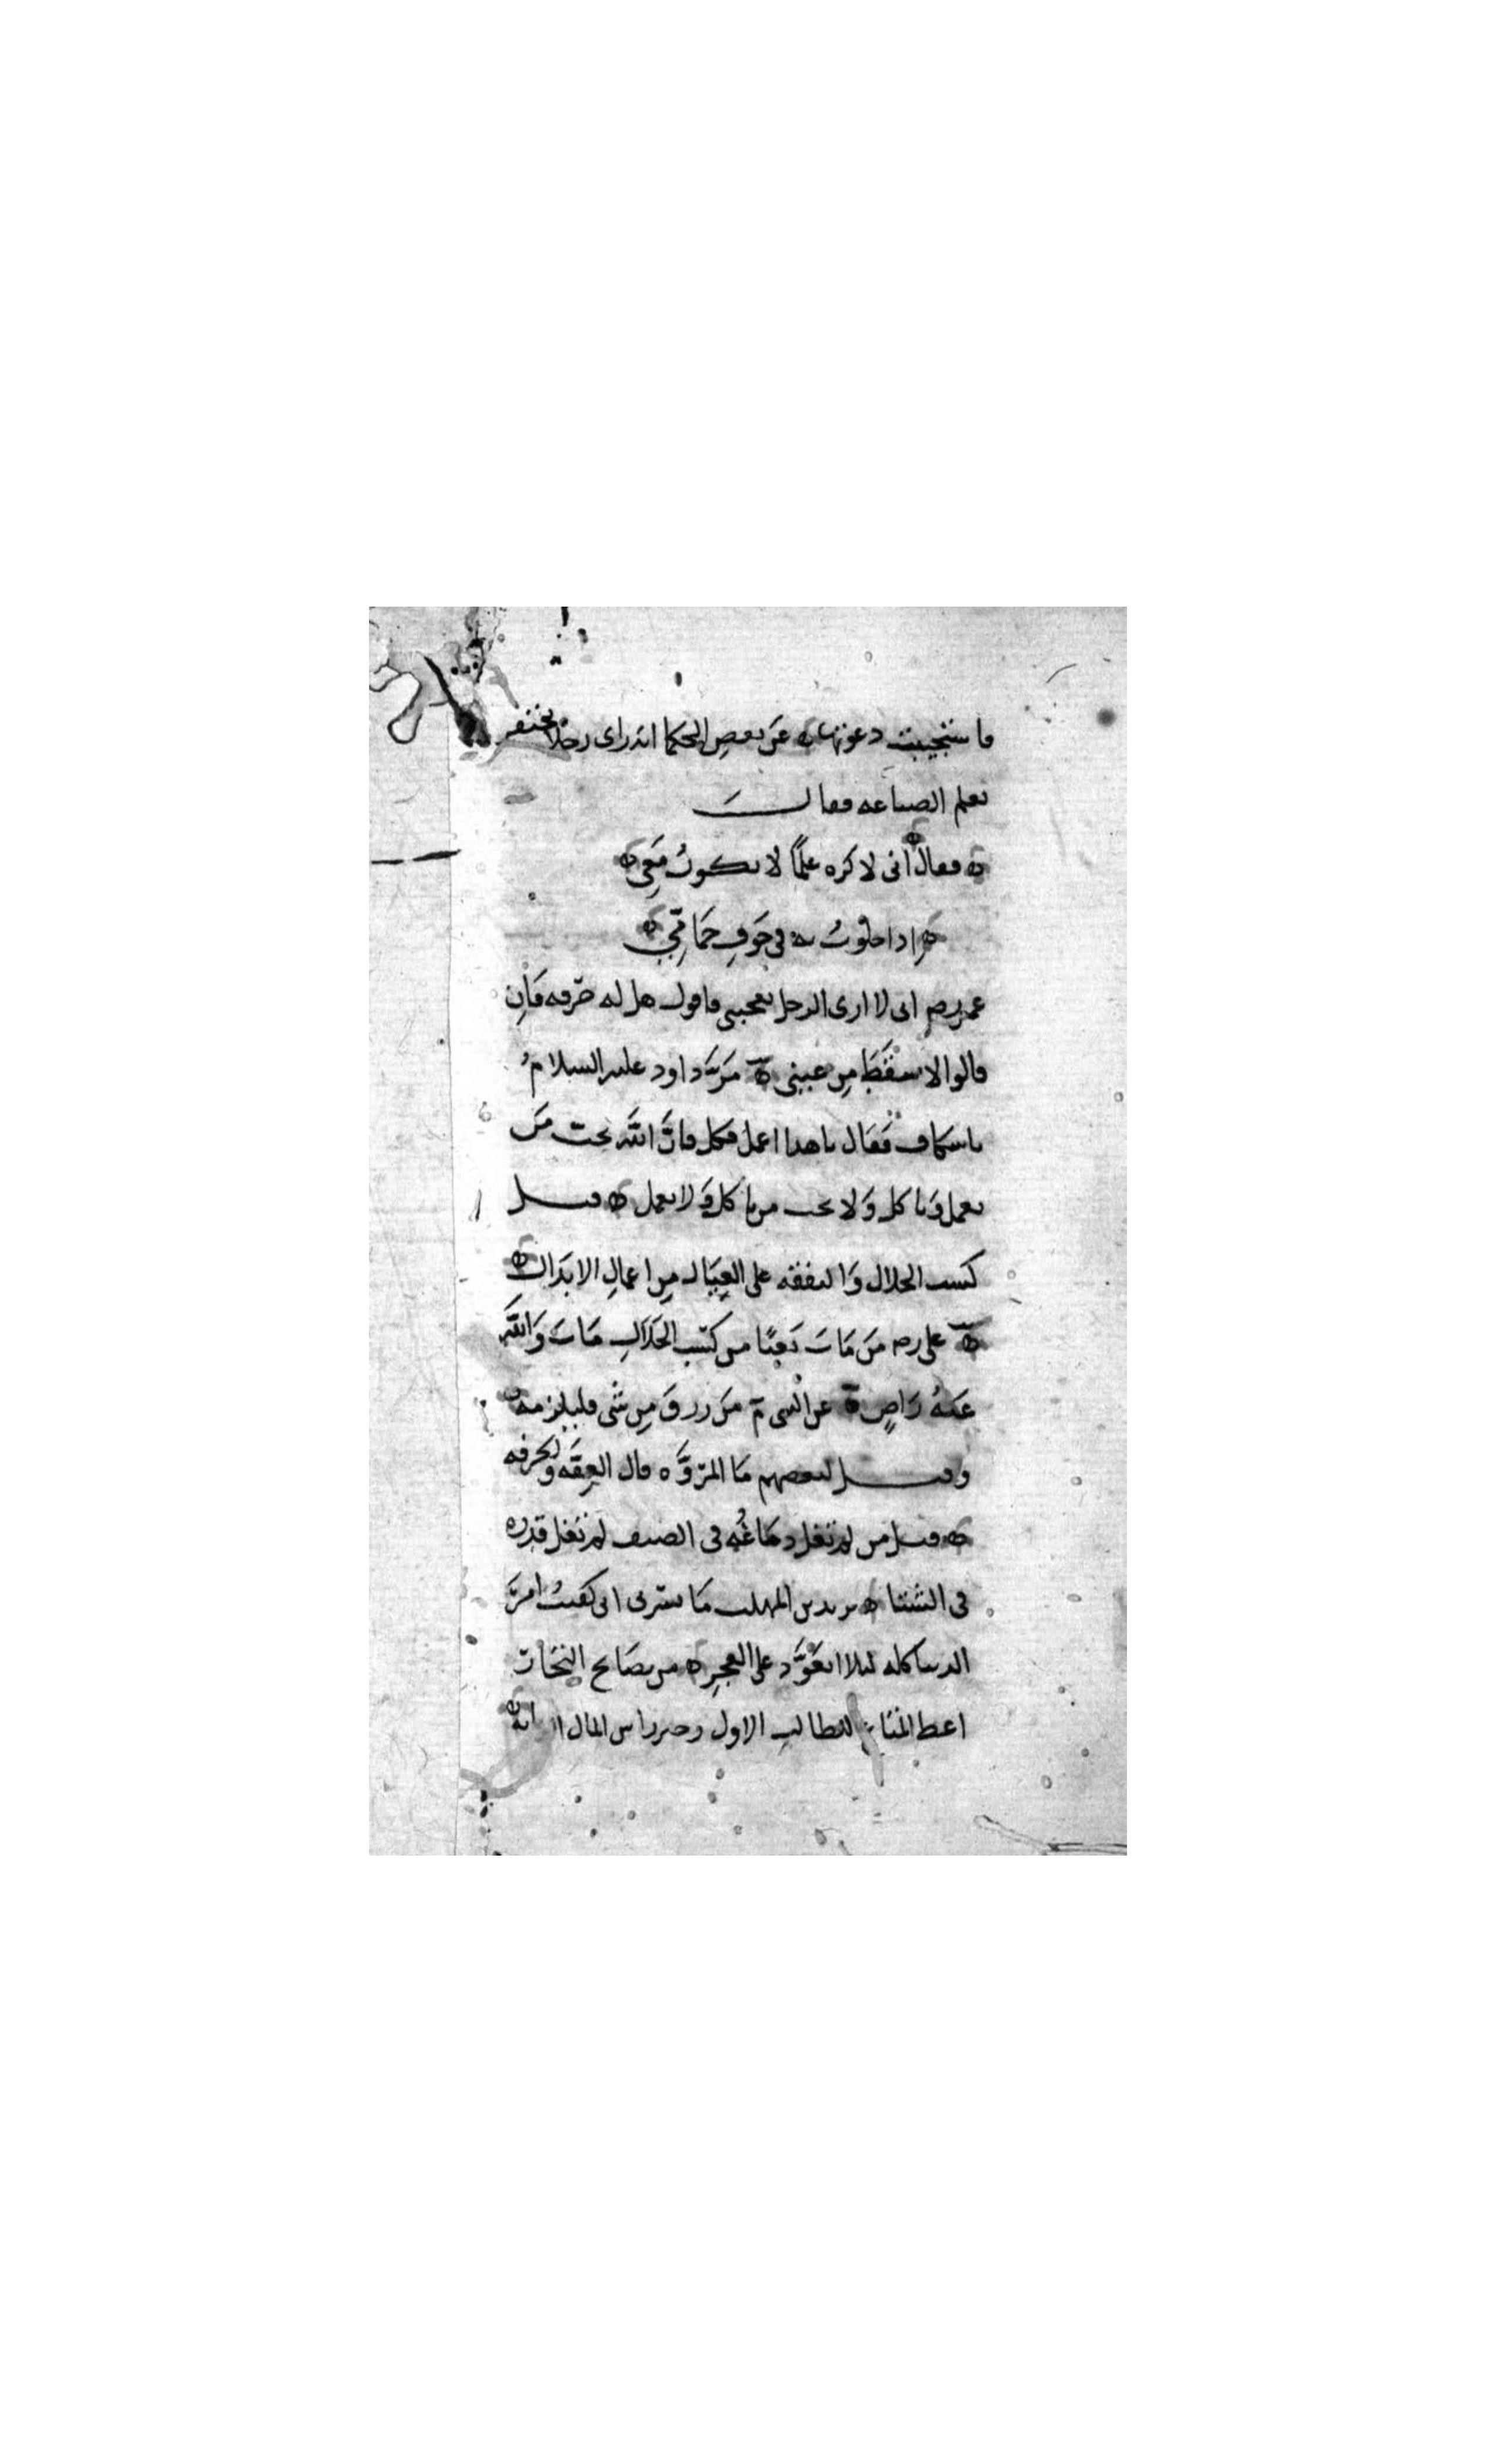 فاستجيبت دعوتها ه عن بعض الحكما انه راى رجلا يحتقر
تعلم الصناعه فقال
ه فقال انى لاكره علمًا لا يكون معى ه
ه اذا خلوت به فى جوف حمام ه
عمر رضه انى لا ارى الرجل يعجبنى فاقول هل له حرفه فان
قالوا لا سقط من عينى ه مرّ داود عليه السلام
باسكاف فقال يا هذا اعمل وكل فانّ الله يحب من
يعمل وياكل ولا يحب من ياكل ولا يعمل ه قيل
كسب الحلال والنفقه على العيال من اعمال الابدال ه
ه على رضه من مات تعبًا من كسب الحلال مات والله
عنه راضٍ ه عن النبى م من رزق من شى فليلزمه
وقيل لبعضهم ما المروّه قال العفّه والحرفه
ه قيل من لم تغل دماغه فى الصيف لم تغل قدره
فى الشتا ه يزيد بن المهلب ما يسرنى انى كفيت امر
الدنيا كله ليلا اتعوّد على العجز ه من نصايح التجار
اعط المتاع للطالب الاول راس المال